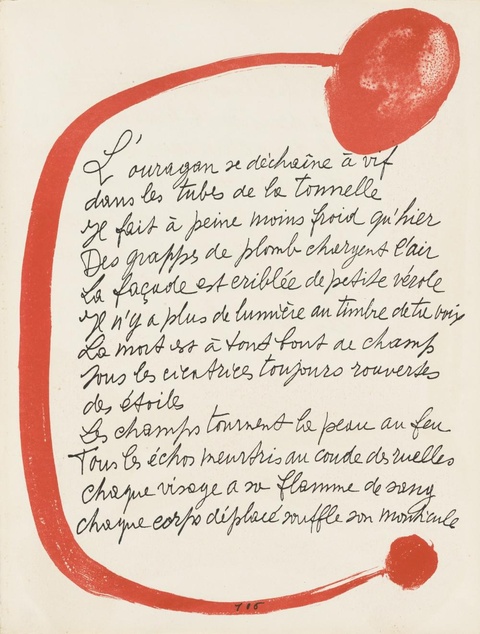 L'ouragan se déchaîne à vif
dans les tubes de la tonnelle
Il fait à peine moins froid qu'hier
Des grappes de plomb chargent l'air
La façade est criblée de petite vérole
Il n'y a plus de lumière au timbre de ta voix
La mort est à tout bout de champ
sous les cicatrices toujours rouvertes
des étoiles
Les champs tournent la peau au feu
Tous les échos meurtris au coude des ruelles
chaque visage a sa flamme de sang
chaque corps déplacé souffle son monticule